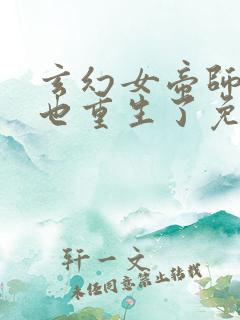 玄幻女帝师
也重生了免
轩一文
未经同意禁止转载